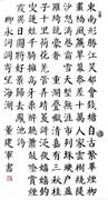 東南形勝江吳都會錢塘自古繁華煙柳
畫橋風簾翠幕參差十萬人家雲樹繞堤
沙怒濤卷霜雪天塹無涯市列珠璣戶盈
羅綺競豪奢重湖疊巘清嘉有三秋桂
子十里荷花羌管弄晴菱歌泛夜嬉嬉釣
叟蓮娃千騎擁高牙乘醉聽簫鼓吟賞煙
霞異日圖將好景歸去鳳池
柳永詞望海潮 董建軍書